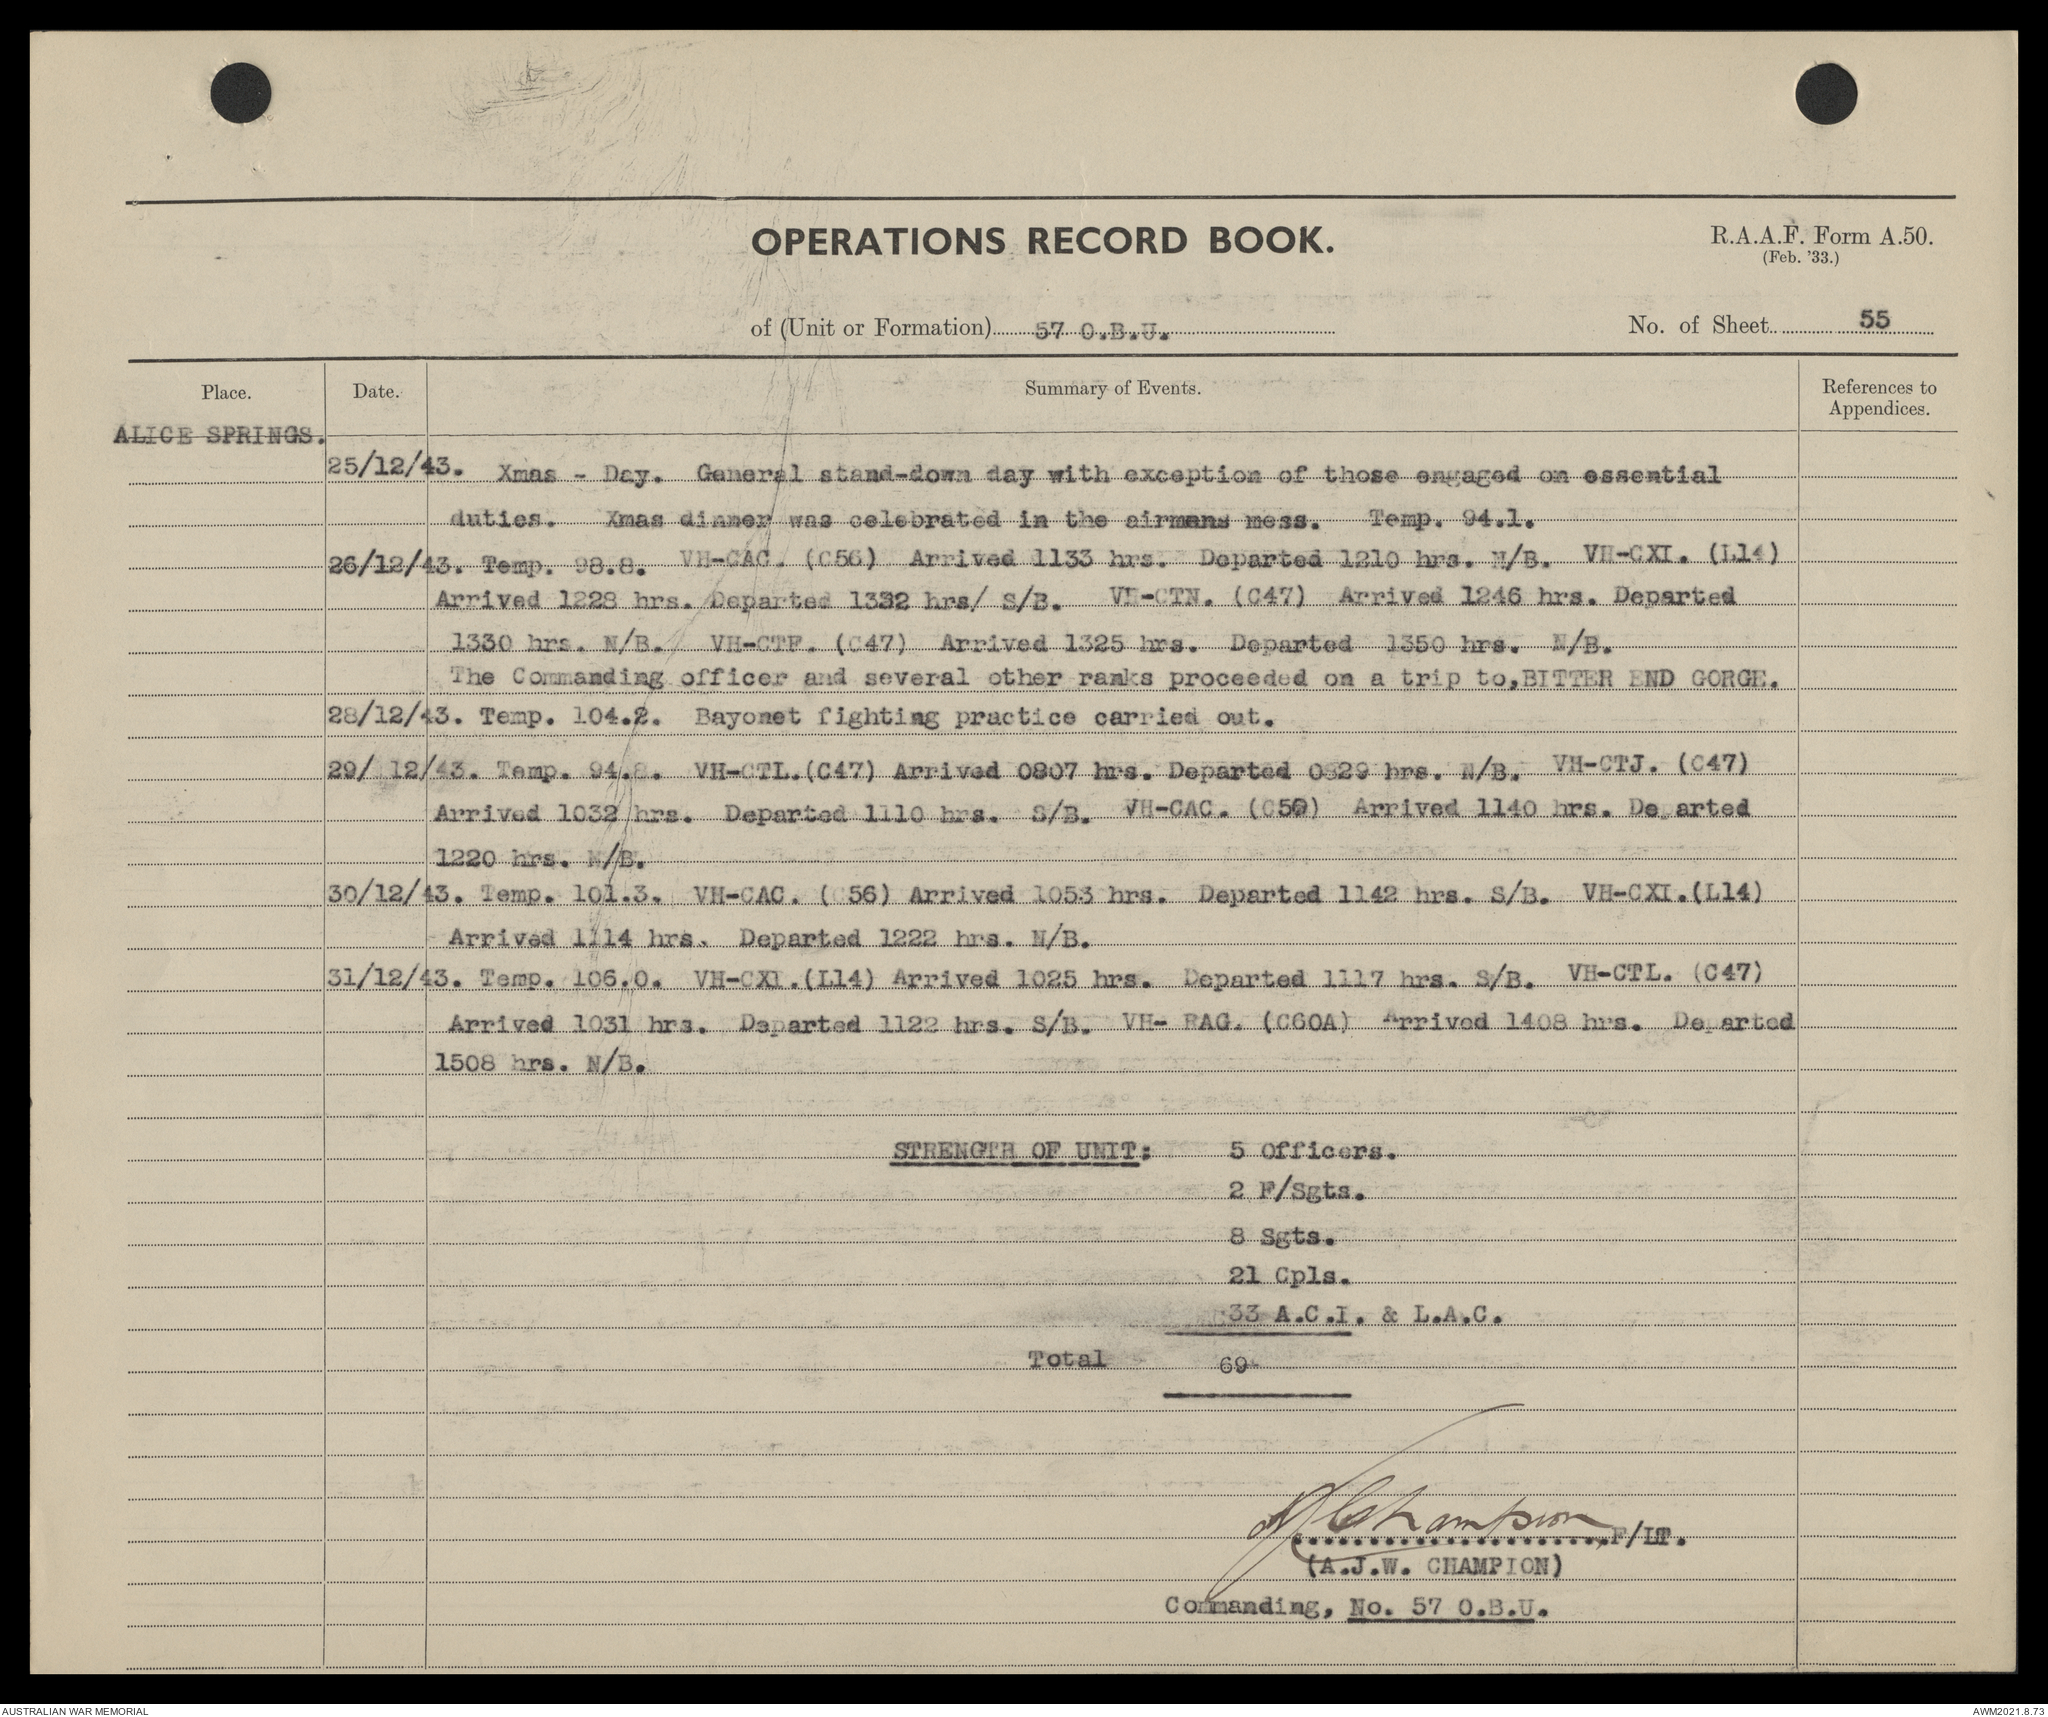 OPERATIONS RECORD BOOK.
R.A.A.F. Form A.50.
(Feb. '33.)
of (Unit or Formation) 57 O.B.U.
No. of Sheet 55
Place. Date. Summary of Events. References to Appendices.
ALICE SPRINGS.
25/12/43. Xmas - Day. General stand-down day with exception of those engaged on essential
duties. Xmas dinner was celebrated in the airmans mess. Temp. 94.1.
26/12/43. Temp. 98.8. VH-CAC. (C56) Arrived 1133 hrs. Departed 1210 hrs. N/B. VH-CXI. (L14)
Arrived 1228 hrs. Departed 1332 hrs/ S/B. VH-CTN. (C47) Arrived 1246 hrs. Departed
1330 hrs. N/B. VH-CTF. (C47) Arrived 1325 hrs. Departed 1350 hrs. N/B.
The Commanding officer and several other ranks proceeded on a trip to,BITTER END GORGE.
28/12/43. Temp. 104.2. Bayonet fighting practice carried out.
29/ 12/43. Temp. 94.8. VH-CTL.(C47) Arrived 0807 hrs. Departed 0829 hrs. N/B. VH-CTJ. (C47)
Arrived 1032 hrs. Departed 1110 hrs. S/B. VH-CAC. (C56) Arrived 1140 hrs. De arted
1220 hrs. N/B.
30/12/43. Temp. 101.3. VH-CAC. (C56) Arrived 1053 hrs. Departed 1142 hrs. S/B. VH-CXI.(L14)
Arrived 1114 hrs. Departed 1222 hrs. N/B.
31/12/43. Temp. 106.0. VH-CXI.(L14) Arrived 1025 hrs. Departed 1117 hrs. S/B. VH-CTL. (C47)
Arrived 1031 hrs. Departed 1122 hrs. S/B. VH- RAG. (C60A) Arrived 1408 hrs. De arted
1508 hrs. N/B.
STRENGTH OF UNIT: 5 Officers.
2 F/Sgts.
8 Sgts.
21 Cpls.
33 A.C.I. & L.A.C.
Total 69
AJChampion F/LT.
(A.J.W. CHAMPION)
Commanding, No. 57 O.B.U.
AUSTRALIAN WAR MEMORIAL
AWM2021.8.73